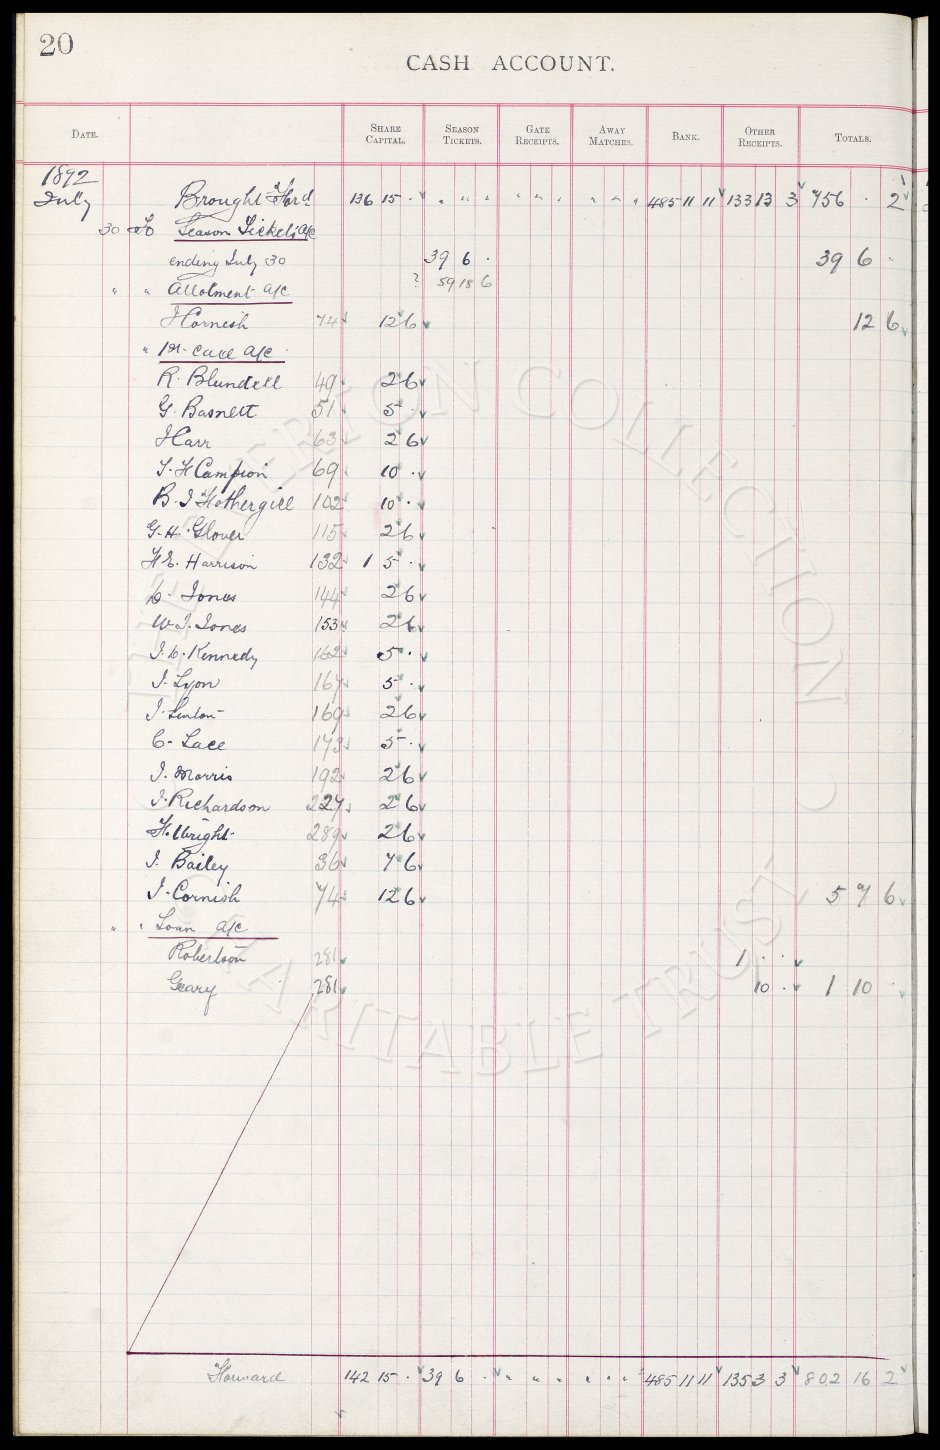 20
CASH ACCOUNT.
DATE. SHARE CAPITAL. SEASON TICKETS. GATE RECEIPTS. AWAY MATCHES. BANK. OTHER RECEIPTS. TOTALS.
1892
July Brought Ford 136 15 · " " " " " " " " " 485 11 11 133 13 3 756 · 2
30 To Season Tickets a/c
ending July 30 39 6 · 39 6 "
" " Allotment a/c ? 59 18 6
J Cornish 74 12 6 12 6
" 1st Call a/c
R. Blundell 49 2 6
G. Basnett 51 5 ·
J Carr 63 2 6
T. H Campion 69 10 ·
B. J Fothergill 102 10 ·
G. H. Glover 115 2 6
H E. Harrison 132 1 5 ·
D. Jones 144 2 6
W J. Jones 153 2 6
J. D. Kennedy 162 5 ·
J. Lyon 167 5 ·
J. Linton 169 2 6
C. Lace 173 5 ·
J. Morris 192 2 6
J. Richardson 227 2 6
H. Wright 289 2 6
J. Bailey 36 7 6
J. Cornish 74 12 6 5 7 6
" " Loan a/c
Robertson 281 1 · ·
Geary 281 10 · 1 10 ·
Forward 142 15 · 39 6 · " " " " " " 485 11 11 135 3 3 802 16 2
THE EVERTON COLLECTION
CHARITABLE TRUST